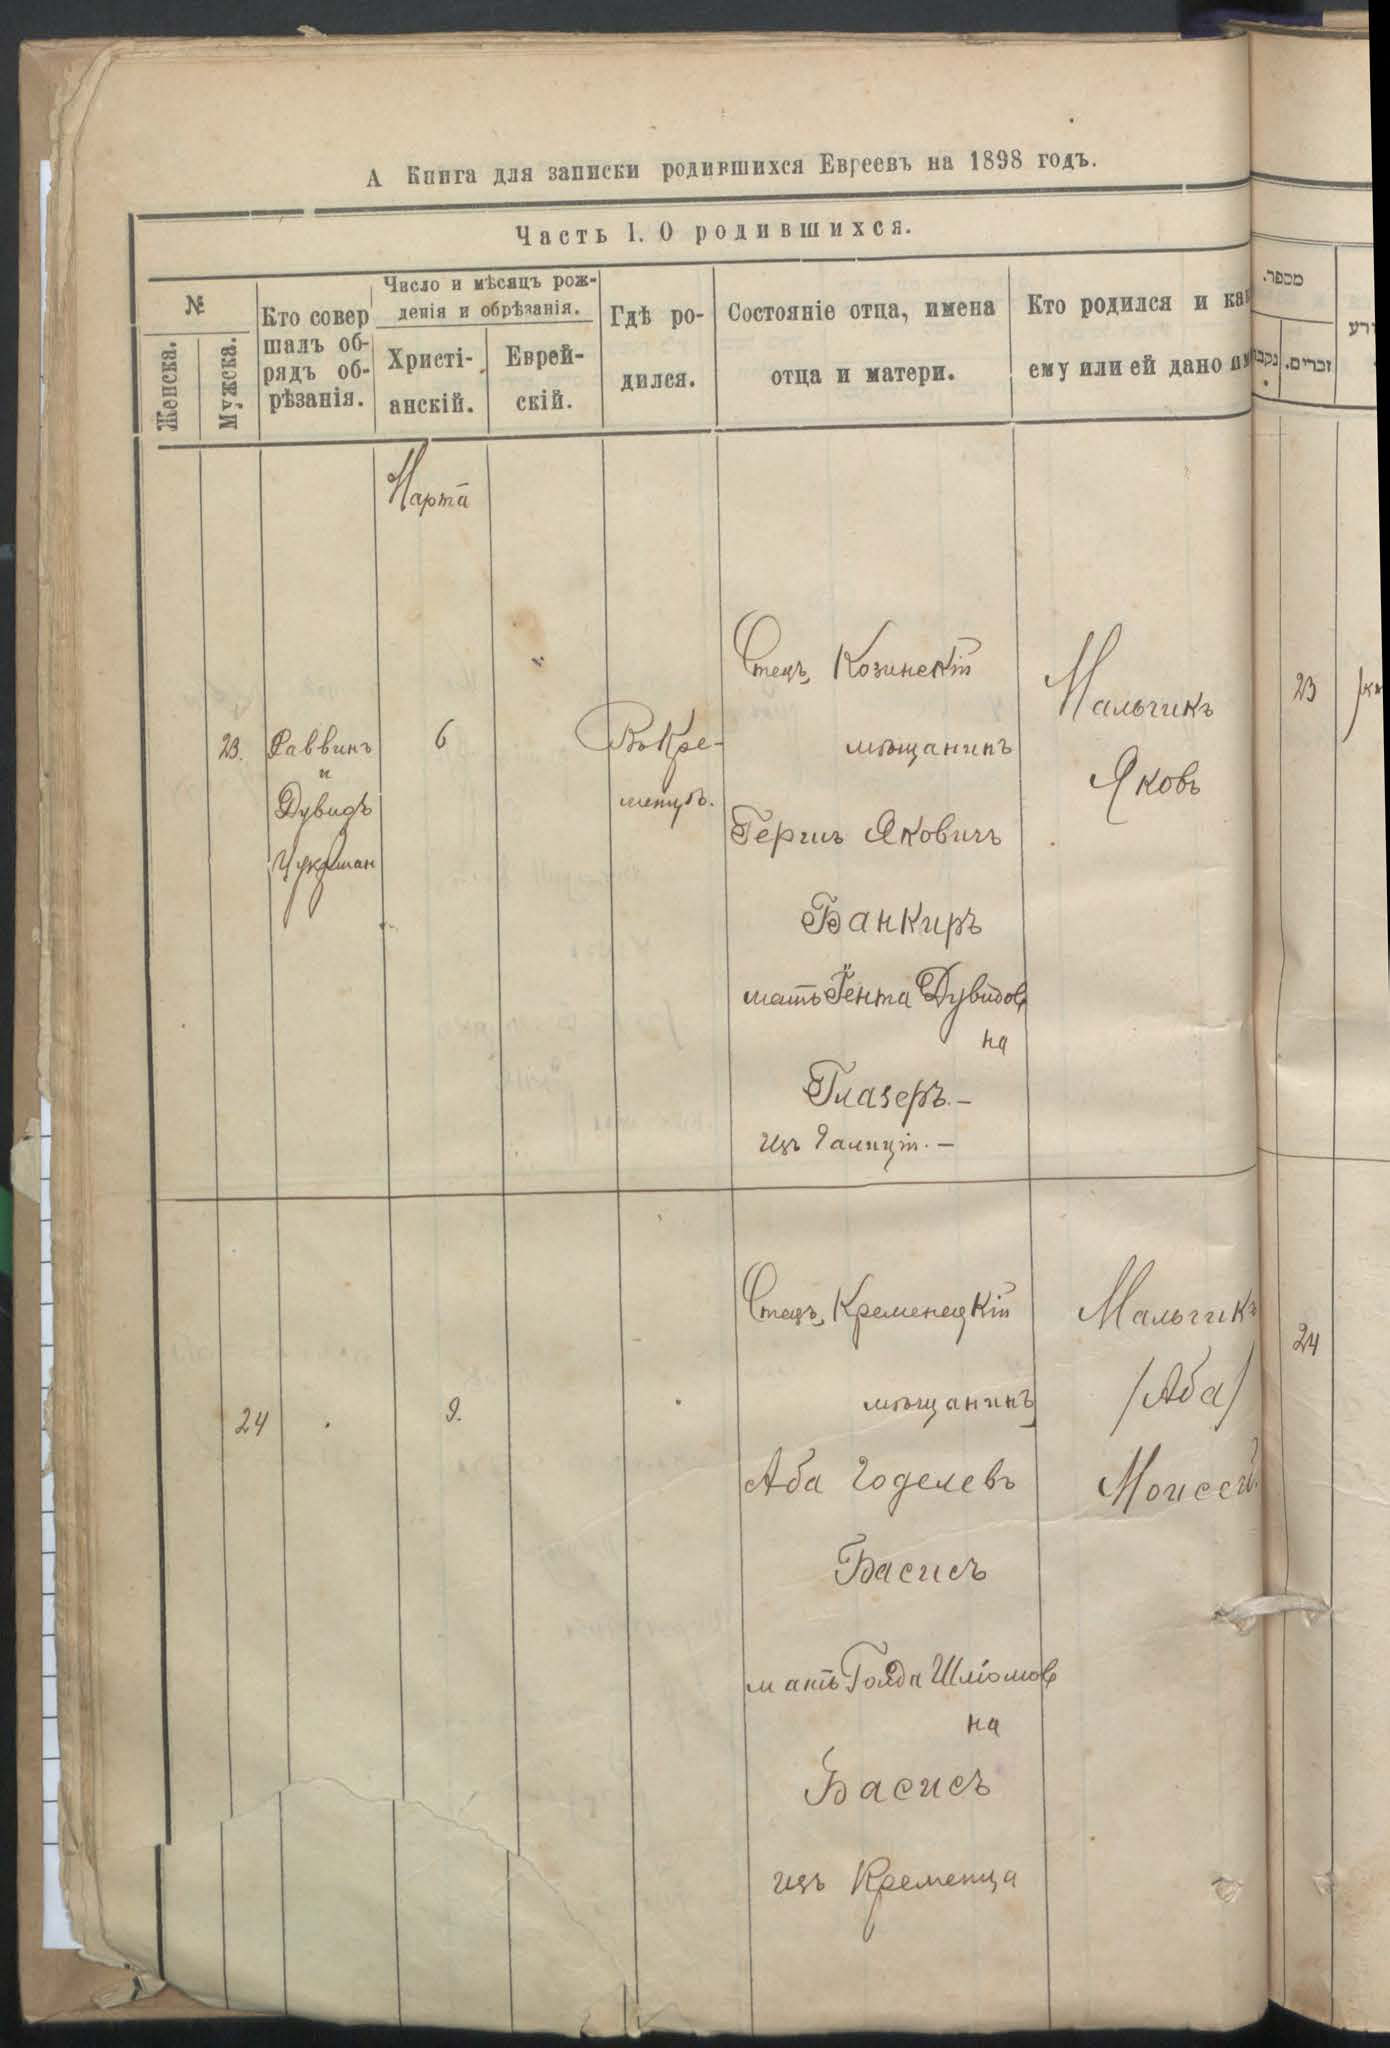 А Книга для записки родившихся Евреевъ на 1898 годъ.
Часть I. О родившихся.
№
Женска.
Мужска.
Кто совер
шалъ об-
рядъ об-
рѣзанія.
Число и мѣсяцъ рож-
денія и обрѣзанія.
Христі-
анскій.
Еврей-
скій.
Гдѣ ро-
дился.
Состояніе отца, имена
отца и матери.
Кто родился и как
ему или ей дано им
מספר.
נקבו
זכרים.
Марта
23.
Раввинъ
и
Дувидъ
Цукерман
6
Въ Кре-
менцѣ.
Отецъ, Козинскій
мѣщанинъ
Гершъ Яковичъ
Банкиръ
мать Гента Дувидов
на
Глазеръ. —
изъ Галиціи. —
Мальчикъ
Яковъ
23
24
9.
Отецъ, Кременецкій
мѣщанинъ
Аба Годелевъ
Басисъ
мать Голда Шліомов
на
Басисъ
изъ Кременца
Мальчикъ
/Аба/
Моисей.
24